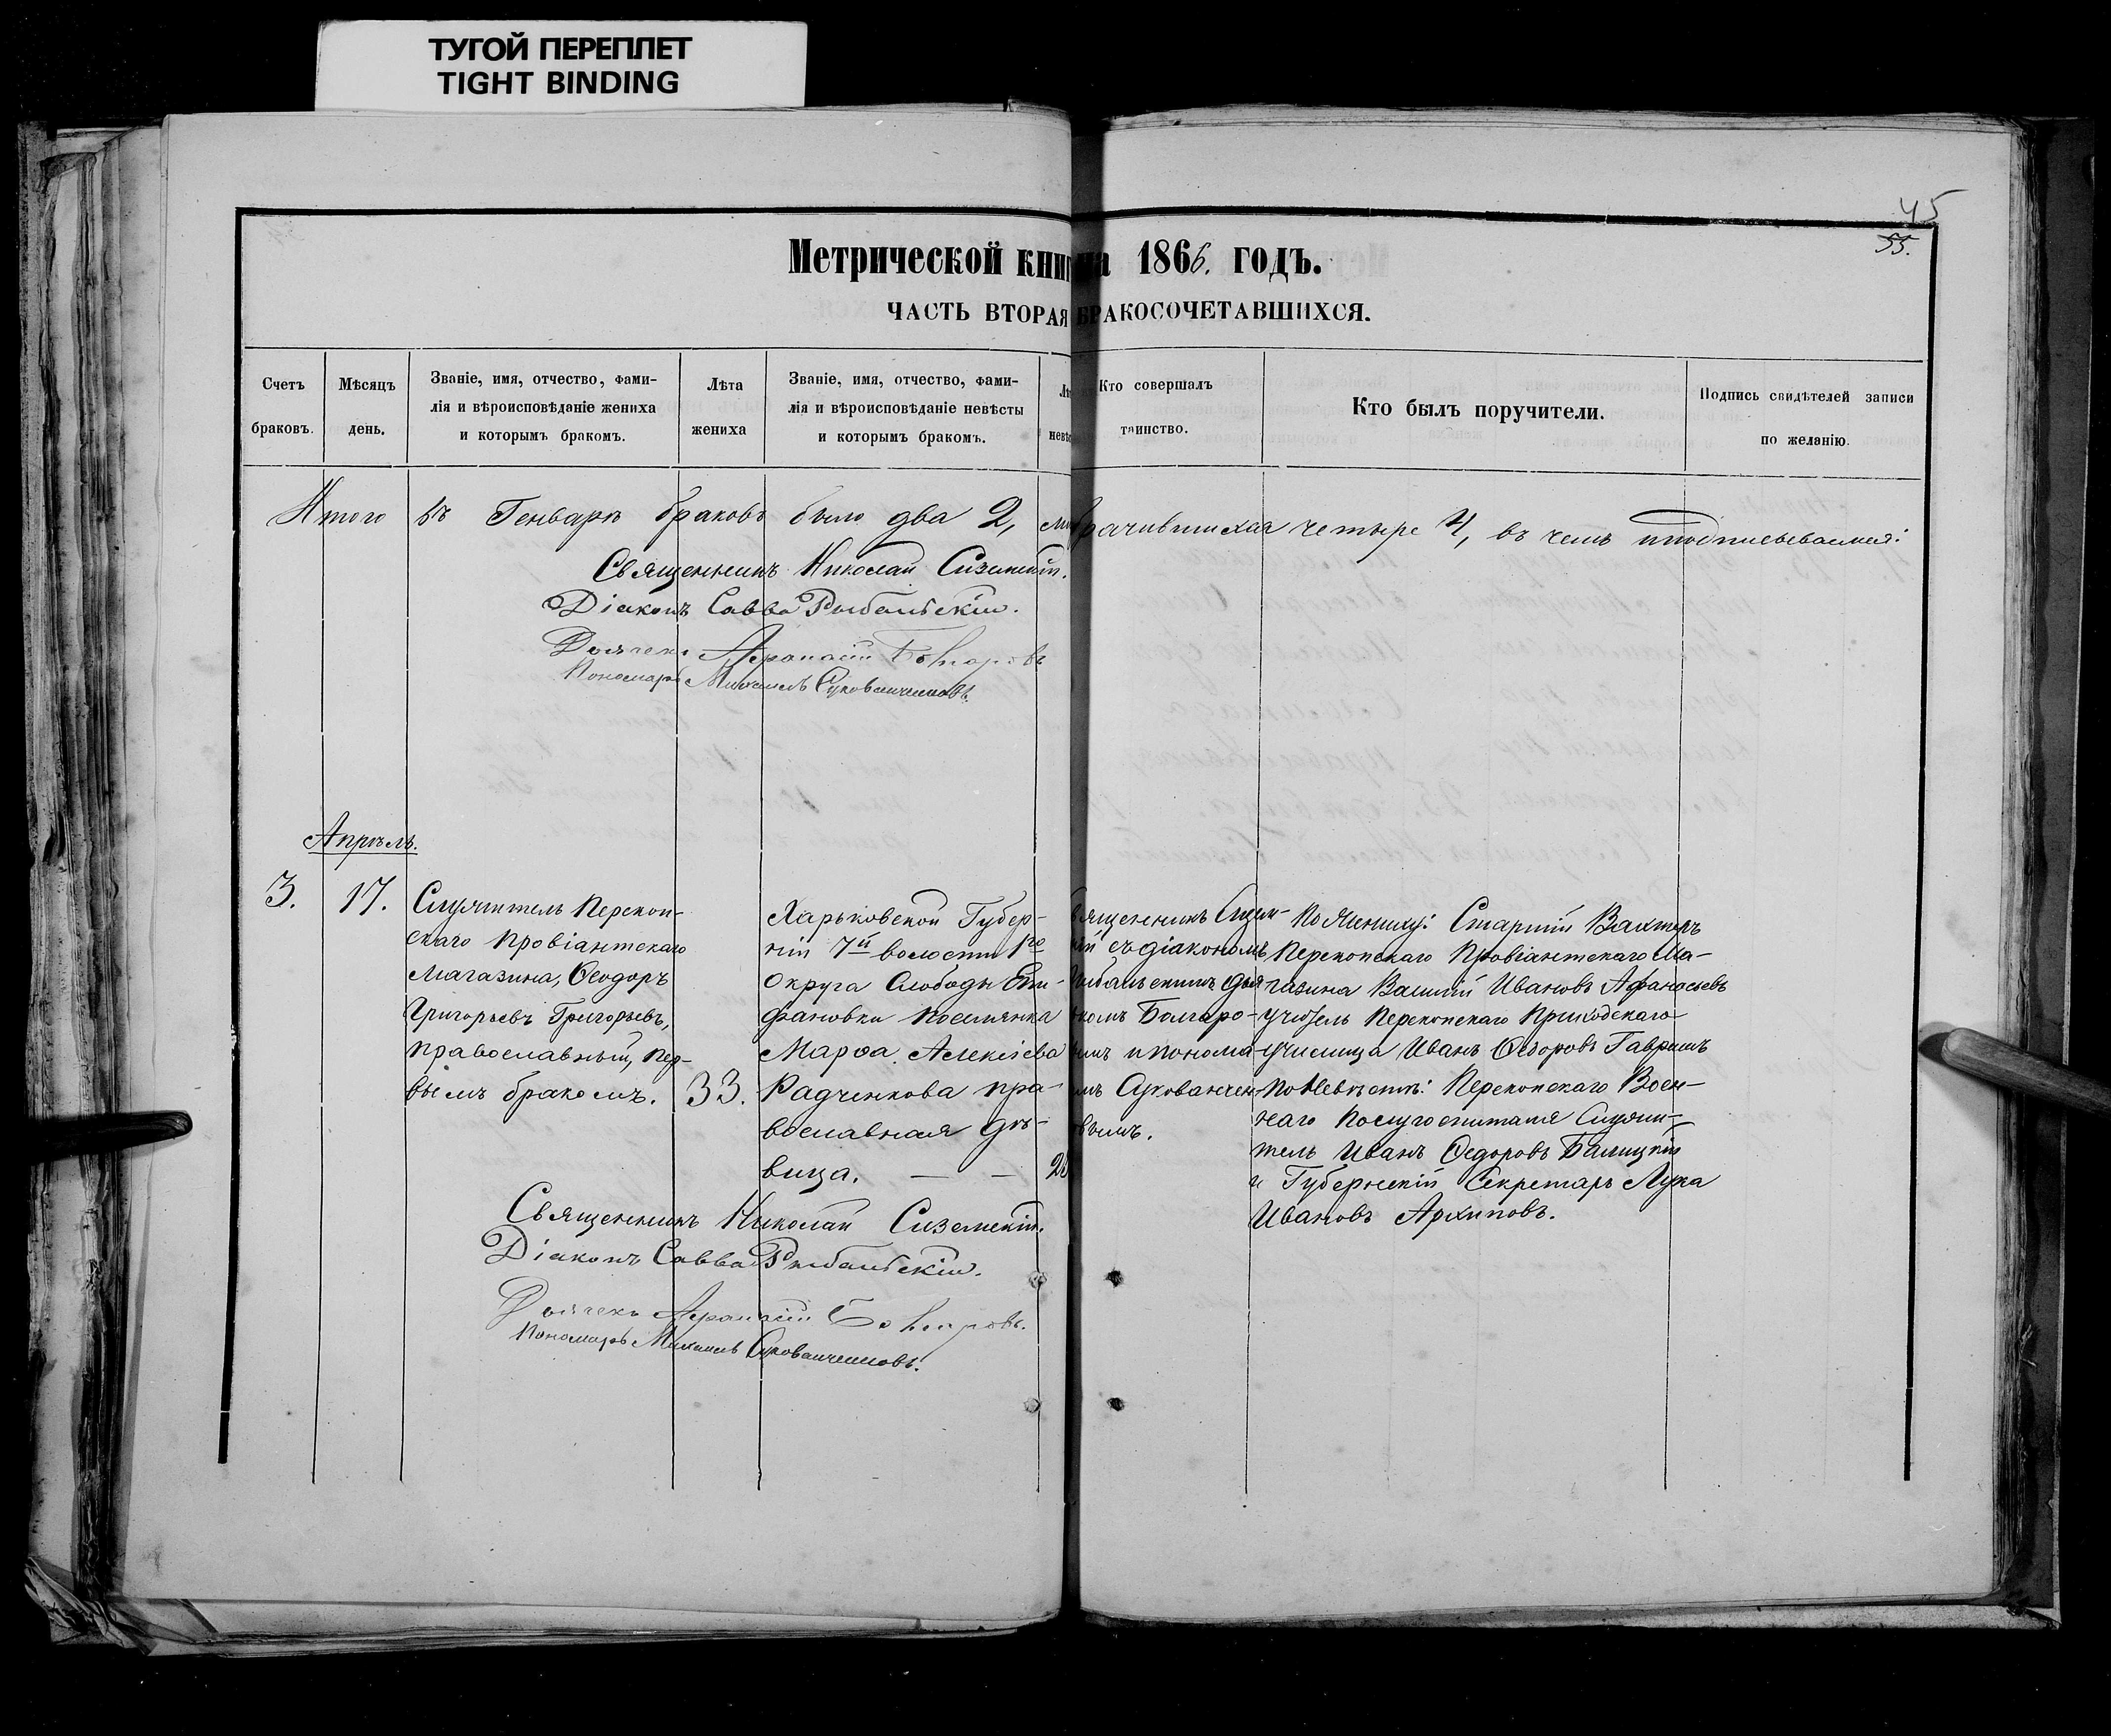 ТУГОЙ ПЕРЕПЛЕТ
TIGHT BINDING
45
55.
Метрической книги на 1866. годъ.
ЧАСТЬ ВТОРАЯ БРАКОСОЧЕТАВШИХСЯ.
Счетъ браковъ.
Мѣсяцъ день.
Званіе, имя, отчество, фами-
лія и вѣроисповѣданіе жениха
и которымъ бракомъ.
Лѣта жениха
Званіе, имя, отчество, фами-
лія и вѣроисповѣданіе невѣсты
и которымъ бракомъ.
Кто совершалъ таинство.
Кто былъ поручители.
Подпись свидѣтелей записи
по желанію.
Итого въ Генварѣ браковъ было два 2, четыре 4, въ чемъ и подписываемся:
Священникъ Николай Сиземскій.
Діаконъ Савва Рыбальскій.
Дьячекъ Афанасій Болгаровъ
Пономарь Михаилъ Сукованченковъ.
Апрѣль.
3.
17.
Служитель Перекоп-
скаго Провіантскаго
Магазина, Ѳеодоръ
Григорьевъ Григорьевъ,
православный, пер-
вымъ бракомъ.
33.
Харьковской Губер-
ніи 7й волости 1го
Округа Слободы Епи-
фановки Поселянка
Марѳа Алексіева
Радченкова пра-
вославная дѣ-
вица. — —
Священникъ Сизем-
скій съ діакономъ
Рыбальскимъ дья-
комъ Болгаро-
вымъ и понома-
ремъ Сукованчен-
вымъ.
По Жениху: Старшій Вахтеръ
Перекопскаго Провіантскаго Ма-
газина Василій Ивановъ Афанасьевъ
Учитель Перекопскаго Приходскаго
Училища Иванъ Ѳедоровъ Гавришъ
По Невѣстѣ: Перекопскаго Воен-
наго Полугоспиталя Служи-
тель Иванъ Ѳедоровъ Балицкій
и Губернскій Секретарь Лука
Ивановъ Архиповъ.
Священникъ Николай Сиземскій.
Діаконъ Савва Рыбальскій.
Дьячекъ Афанасій Болгаровъ.
Пономарь Михаилъ Сукованченковъ.